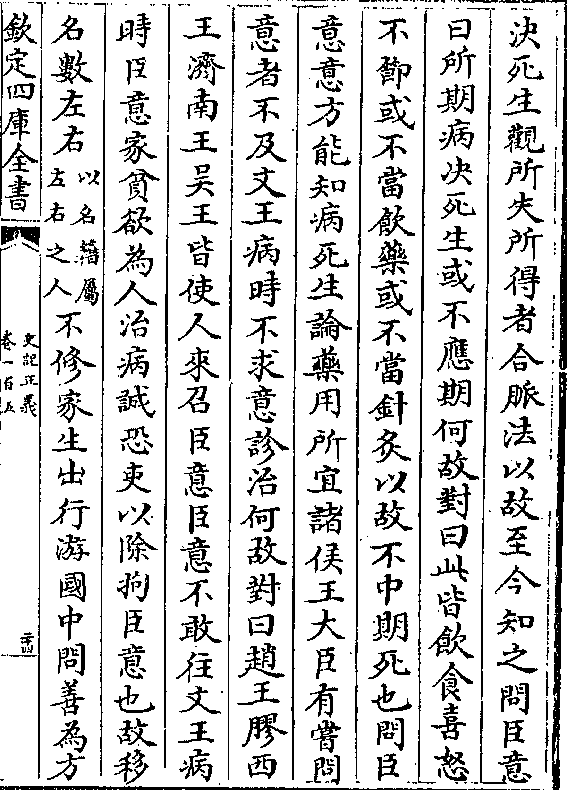 決死生觀所失所得者合脈法以故至今知之問臣意
曰所期病决死生或不應期何故對曰此皆飲食喜怒
不節或不當飲藥或不當針灸以故不中期死也問臣
意意方能知病死生論藥用所宜諸侯王大臣有嘗問
意者不及文王病時不求意診治何故對曰趙王膠西
王濟南王吳王皆使人來召臣意臣意不敢往文王病
時臣意家貧欲為人治病誠恐吏以除拘臣意也故移
名數左右以名籍屬左右之人不修家生出行游國中問善為方
欽定四庫全書
史記正義
卷一百五
二十四